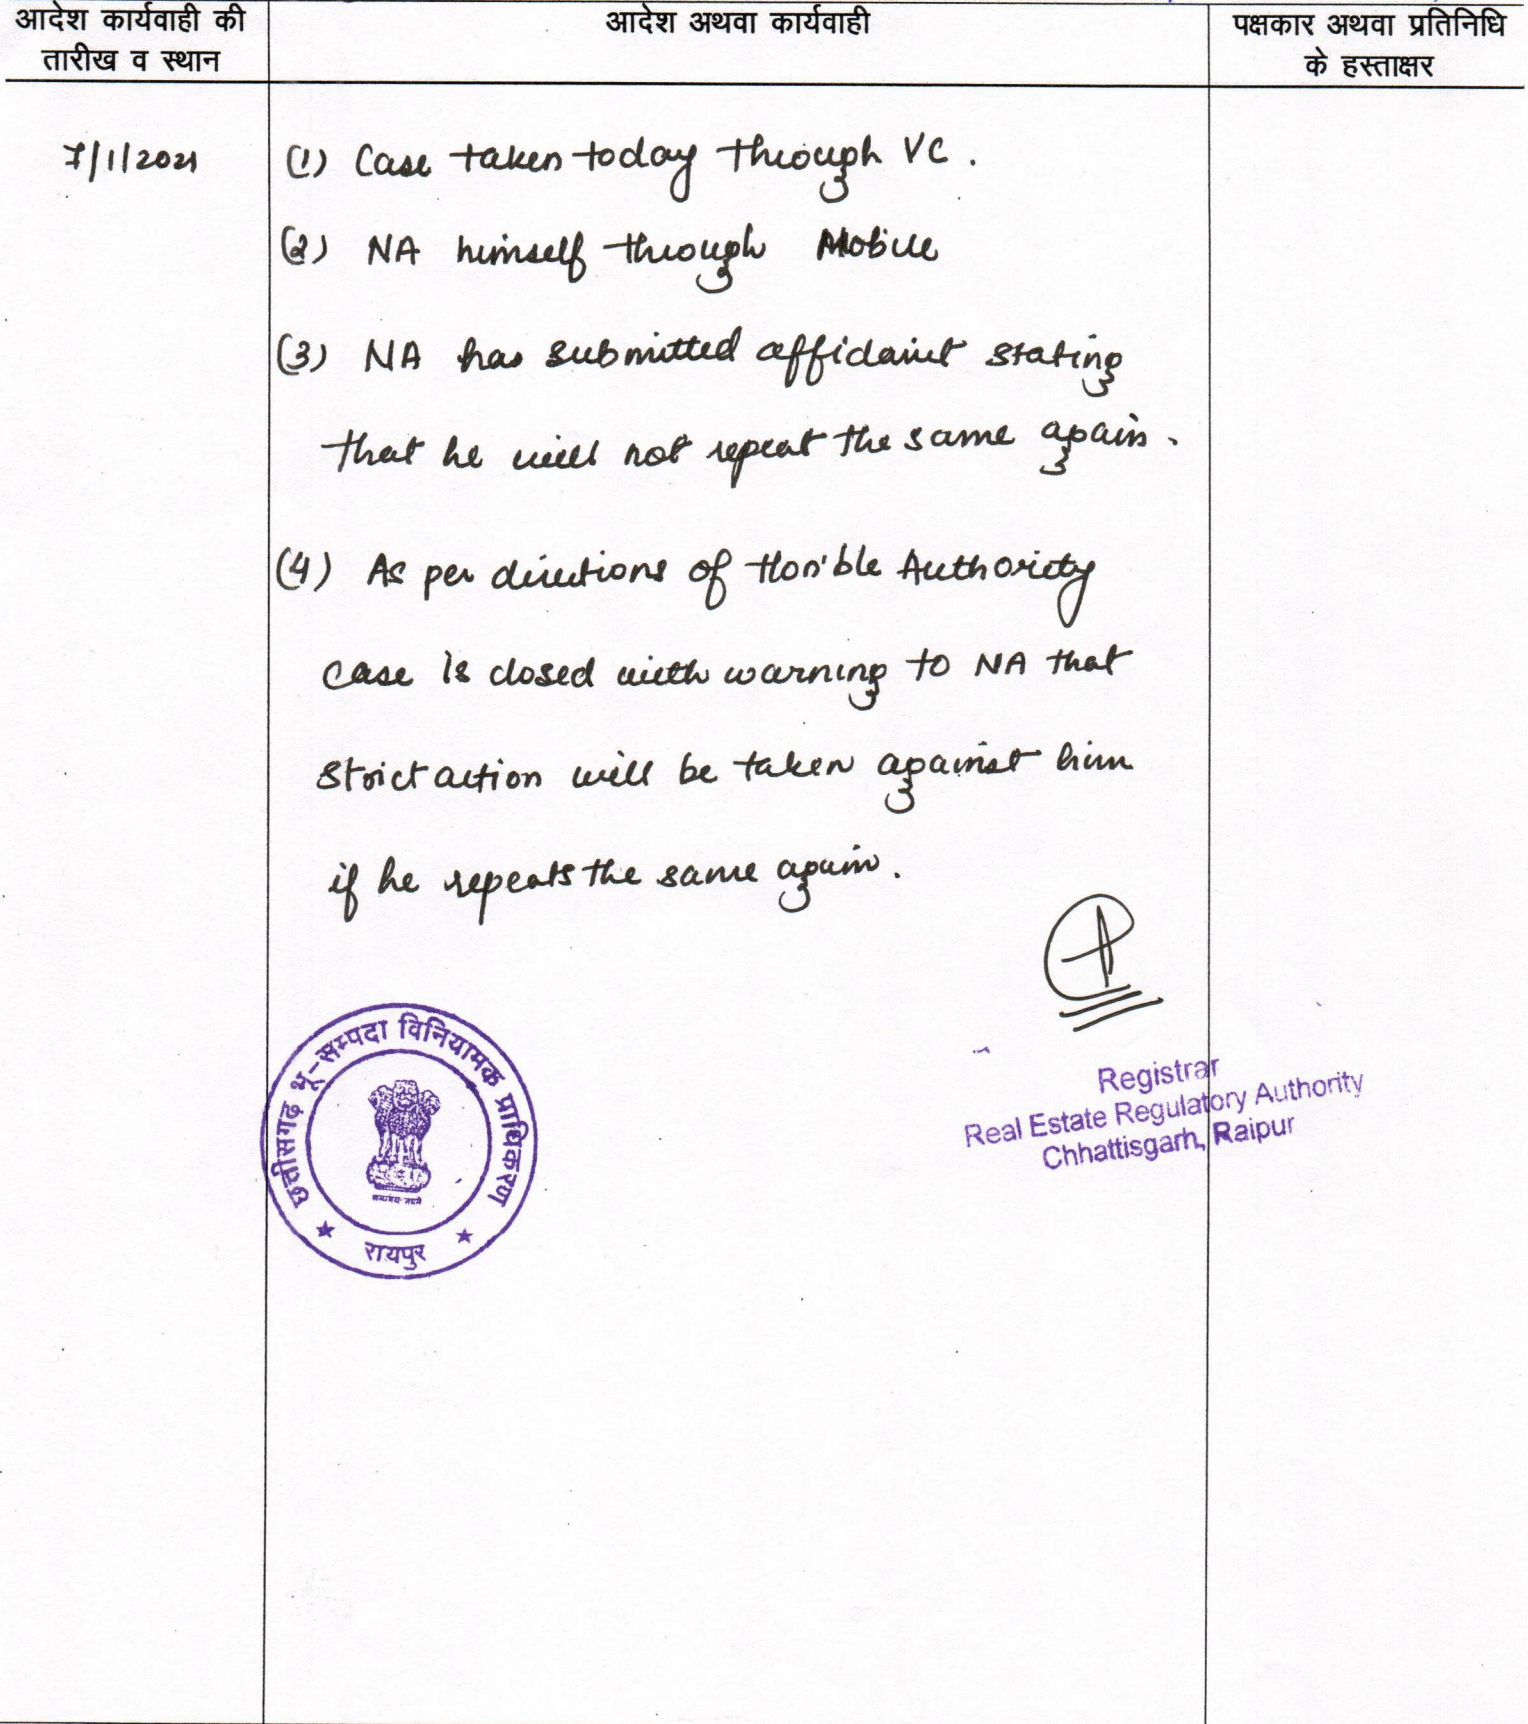 आदेश कार्यवाही की
तारीख व स्थान
आदेश अथवा कार्यवाही
पक्षकार अथवा प्रतिनिधि
के हस्ताक्षर
7/1/2021
(1) Case taken today through VC .
(2) NA himself through Mobile
(3) NA has submitted affidavit stating
that he will not repeat the same again.
(4) As per directions of Hon'ble Authority
case is closed with warning to NA that
strict action will be taken against him
if he repeats the same again.
छत्तीसगढ़ भू-सम्पदा विनियामक प्राधिकरण
रायपुर
Registrar
Real Estate Regulatory Authority
Chhattisgarh, Raipur